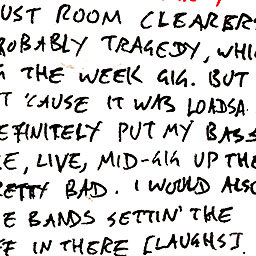 UST ROOM CLEARERS
ROBABLY TRAGEDY, WHIC
THE WEEK GIG. BUT
T 'CAUSE IT WAS LOADSA
EFINITELY PUT MY BASS
E, LIVE, MID-GIG UP THE
RETTY BAD. I WOULD ALSO
E BANDS SETTIN' THE
FE IN THERE [LAUGHS].